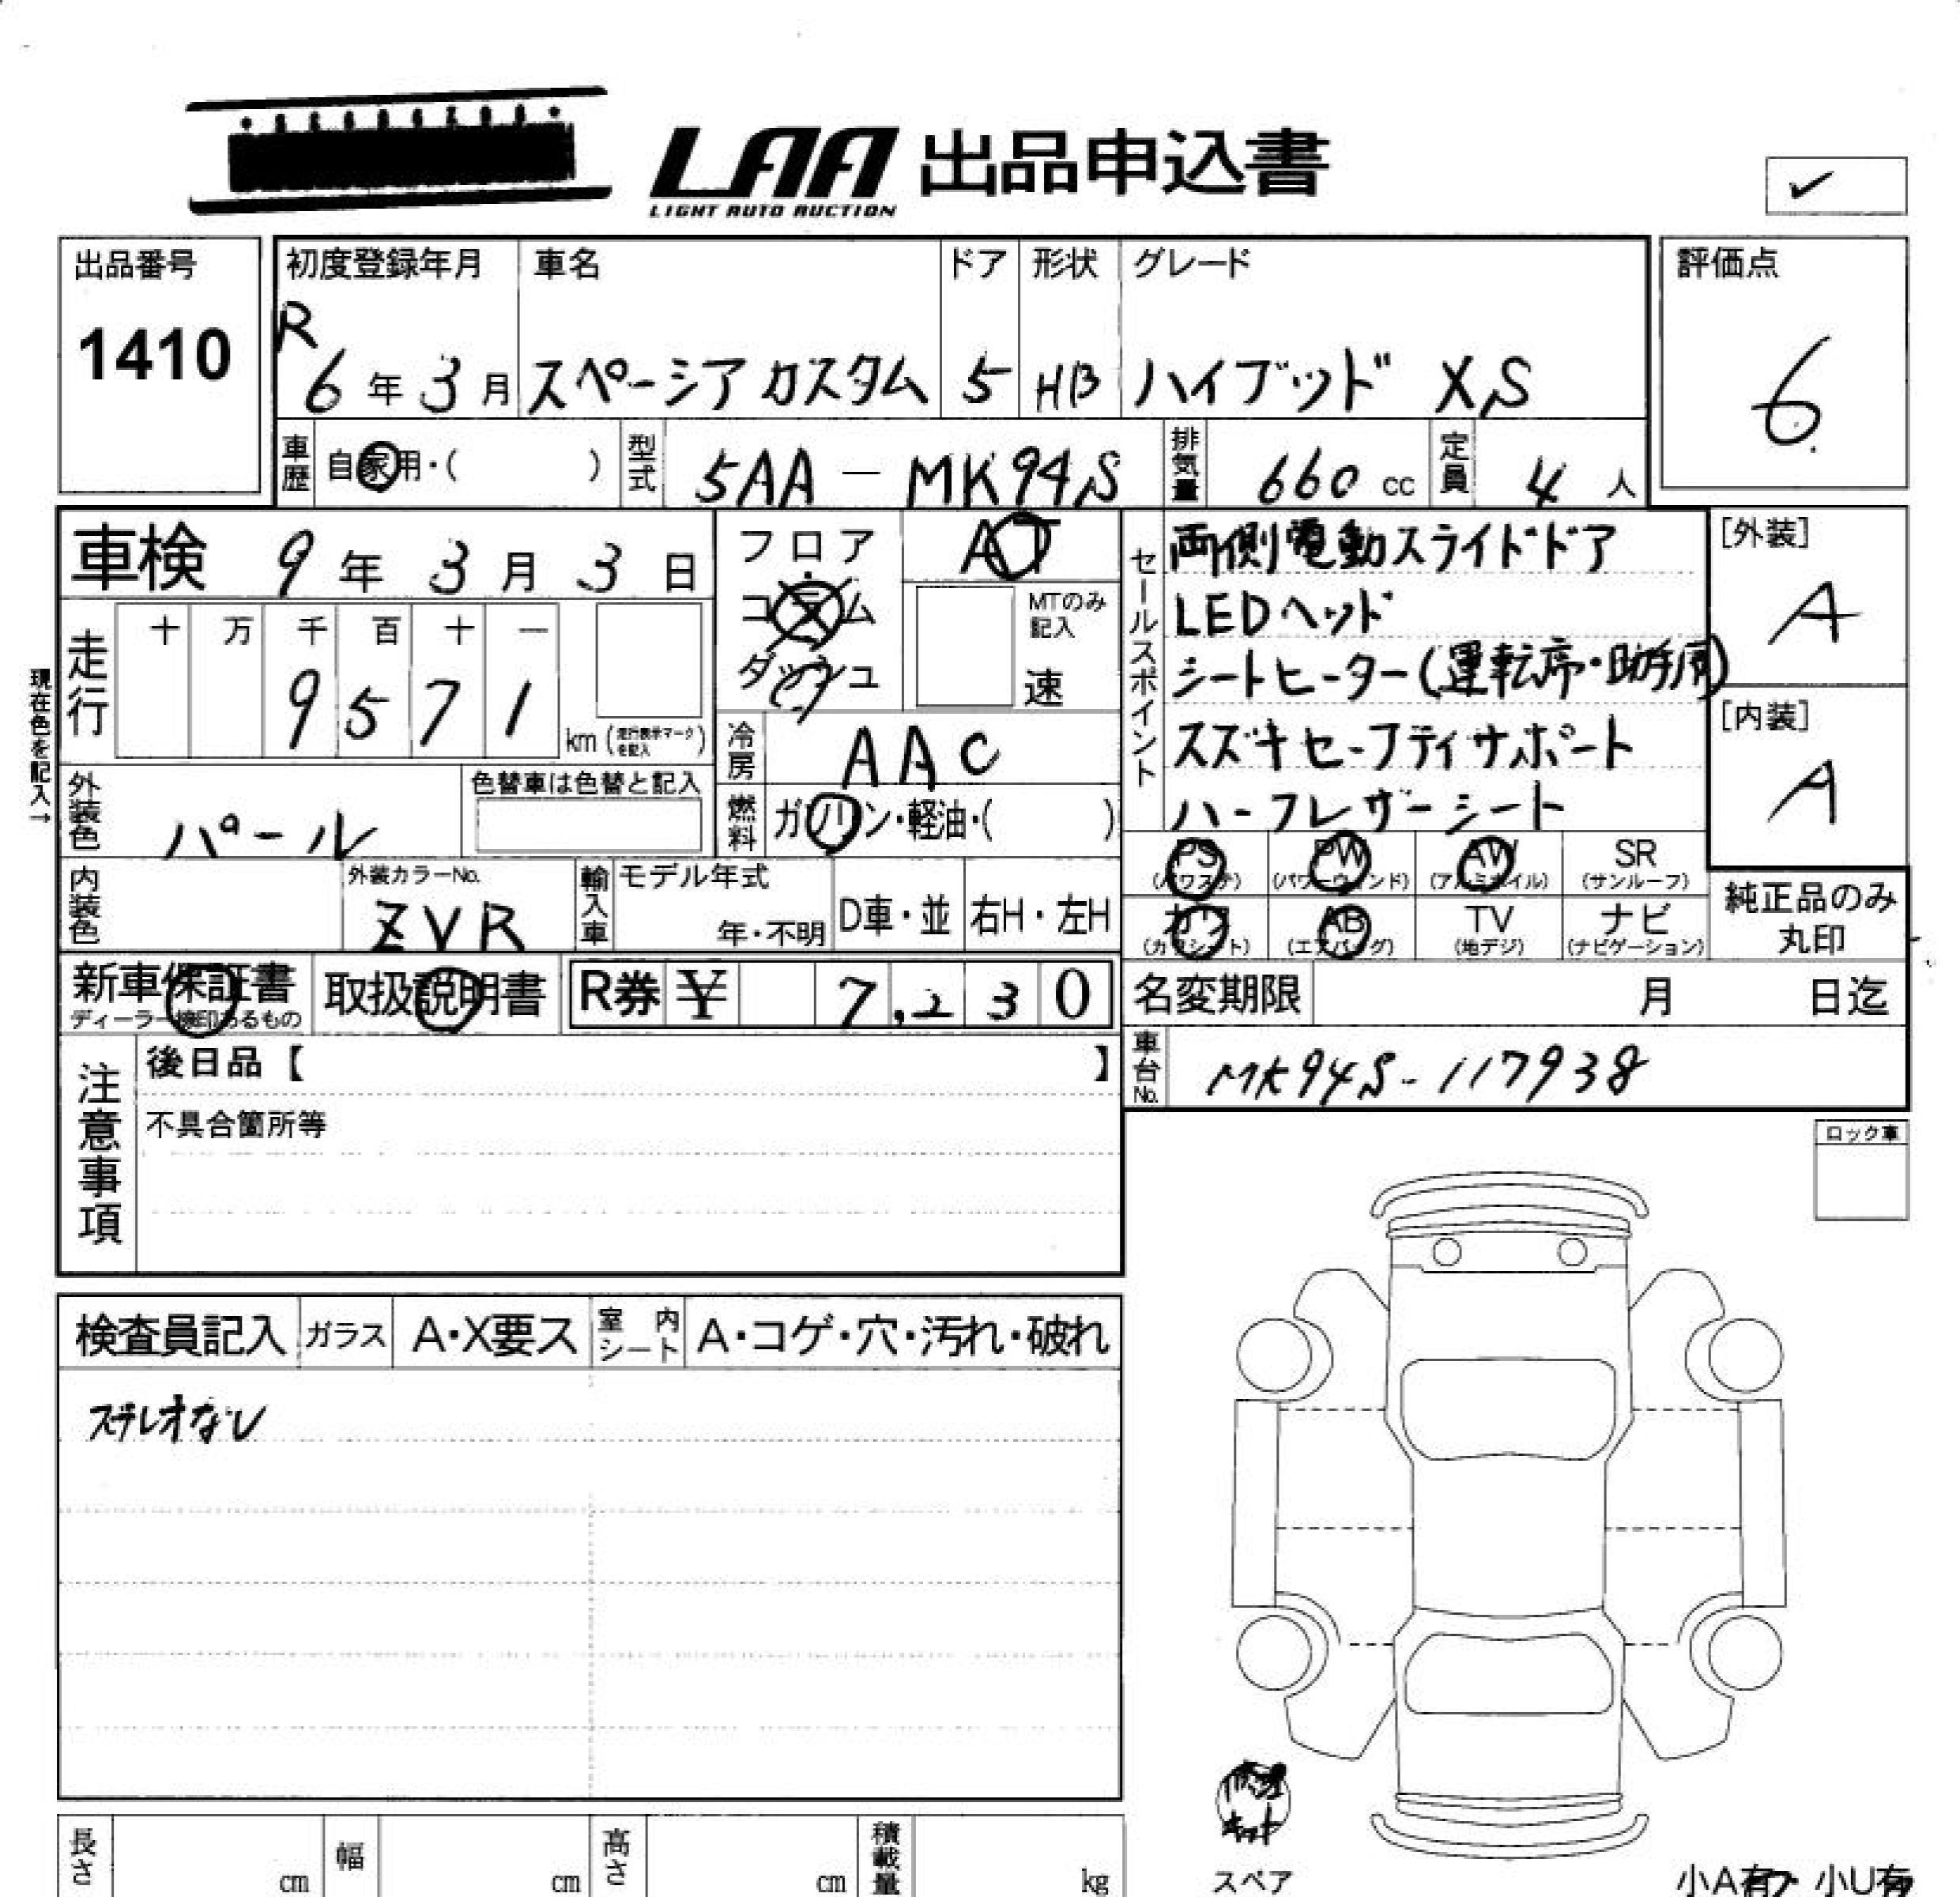 LAA 出品申込書
LIGHT AUTO AUCTION
出品番号
1410
初度登録年月
R
6年3月
車名
スペーシアカスタム
ドア
5
形状
HB
グレード
ハイブッド XS
評価点
6.
車歴
自家用・( )
型式
5AA - MK94S
排気量
660 cc
定員
4人
車検 9年3月3日
フロア
コラム
ダッシュ
AT
MTのみ記入
速
セールスポイント
両側電動スライドドア
LEDヘッド
シートヒーター(運転席・助手席)
スズキセーフティサポート
ハーフレザーシート
[外装]
A
[内装]
A
現在色を記入→
走行
十 万 千 百 十 一
9 5 7 1
km (走行表示マークを記入)
冷房
AAC
外装色
パール
色替車は色替と記入
燃料
ガソリン・軽油・( )
内装色
外装カラーNo.
ZVR
輸入車
モデル年式
年・不明
D車・並
右H・左H
PS
(パワステ)
PW
(パワーウィンド)
AW
(アルミホイル)
SR
(サンルーフ)
カワ
(カワシート)
AB
(エアバッグ)
TV
(地デジ)
ナビ
(ナビゲーション)
純正品のみ
丸印
新車保証書
ディーラー捺印あるもの
取扱説明書
R券 ¥ 7,230
名変期限 月 日迄
車台No.
MK94S-117938
注意事項
後日品【 】
不具合箇所等
ロック車
検査員記入
ガラス
A・X要ス
室内シート
A・コゲ・穴・汚れ・破れ
ステレオなし
修理
キット
スペア
長さ cm
幅 cm
高さ cm
積載量 kg
小A有 小U有